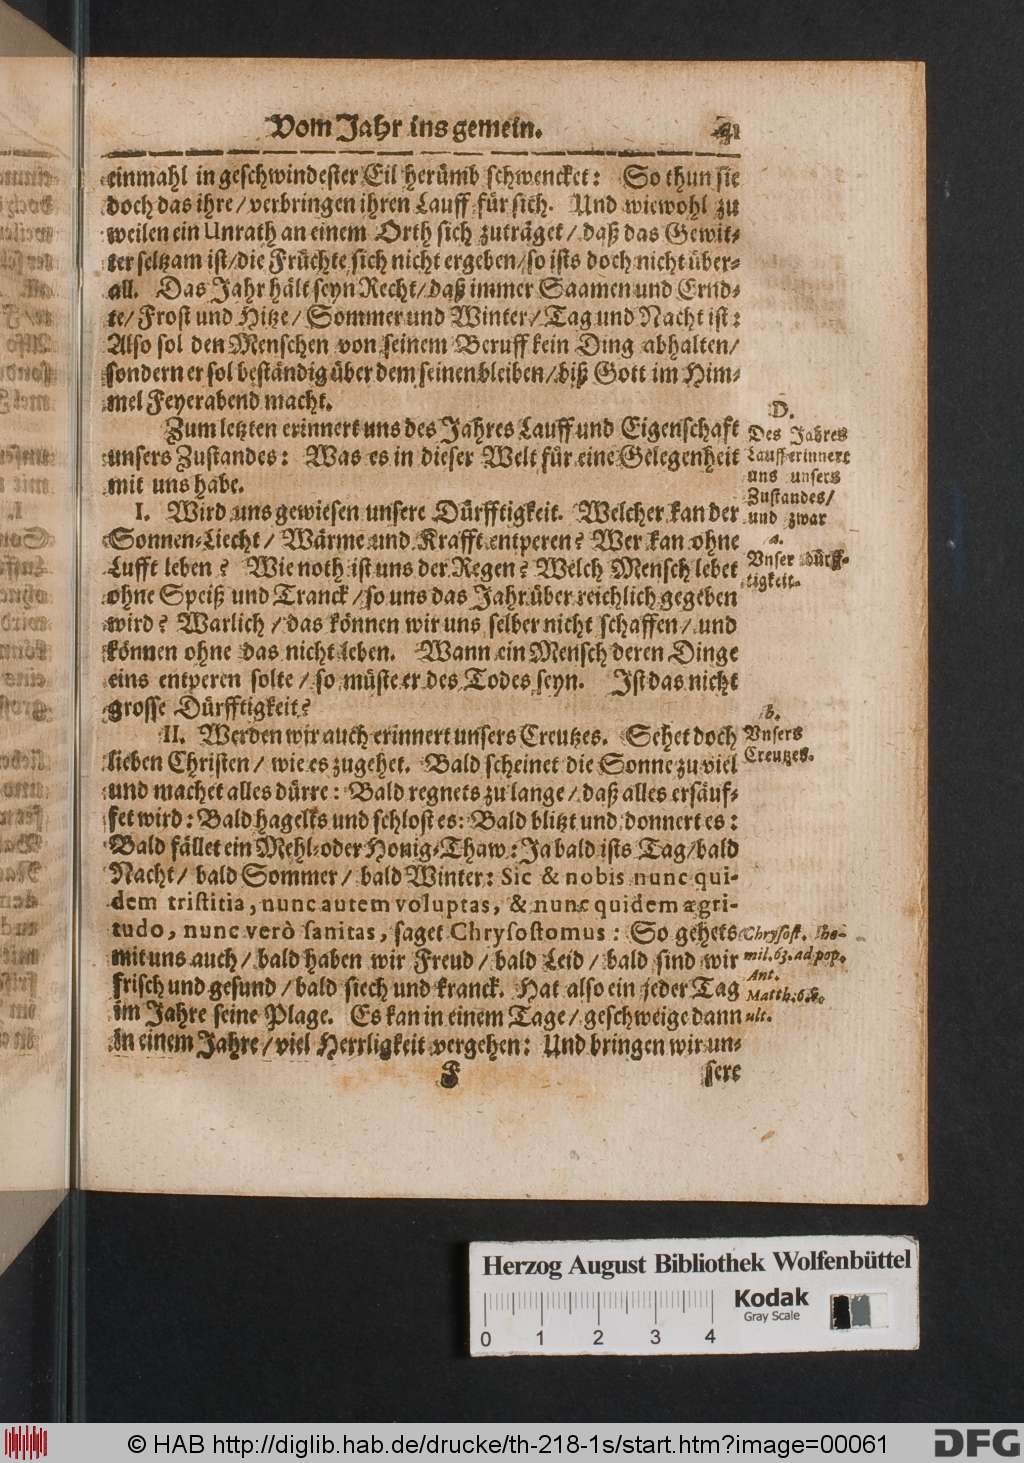 Vom Jahr ins gemein. 41
einmahl in geschwindester Eil herümb schwencket: So thun sie
doch das ihre/ verbringen ihren Lauff für sich. Und wiewohl zu
weilen ein Unrath an einem Orth sich zuträget/ daß das Gewit-
ter seltzam ist/ die Früchte sich nicht ergeben/ so ists doch nicht über-
all. Das Jahr hält seyn Recht/ daß immer Saamen und Ernd-
te/ Frost und Hitze/ Sommer und Winter/ Tag und Nacht ist:
Also sol den Menschen von seinem Beruff kein Ding abhalten/
sondern er sol beständig über dem seinen bleiben/ biß Gott im Him-
mel Feyerabend macht.
Zum letzten erinnert uns des Jahres Lauff und Eigenschaft
unsers Zustandes: Was es in dieser Welt für eine Gelegenheit
mit uns habe.
D.
Des Jahres
Lauff erinnert
uns unsers
Zustandes/
und zwar
I. Wird uns gewiesen unsere Dürfftigkeit. Welcher kan der
Sonnen-Liecht/ Wärme und Krafft entperen? Wer kan ohne
Lufft leben? Wie noth ist uns der Regen? Welch Mensch lebet
ohne Speiß und Tranck/ so uns das Jahr über reichlich gegeben
wird? Warlich/ das können wir uns selber nicht schaffen/ und
können ohne das nicht leben. Wann ein Mensch deren Dinge
eins entperen solte/ so müste er des Todes seyn. Ist das nicht
grosse Dürfftigkeit?
a.
Vnser dürff-
tigkeit.
II. Werden wir auch erinnert unsers Creutzes. Sehet doch
lieben Christen/ wie es zugehet. Bald scheinet die Sonne zu viel
und machet alles dürre: Bald regnets zu lange/ daß alles ersäuf-
fet wird: Bald hagelts und schlost es: Bald blitzt und donnert es:
Bald fället ein Mehl- oder Honig-Thaw: Ja bald ists Tag/ bald
Nacht/ bald Sommer/ bald Winter: Sic & nobis nunc qui-
dem tristitia, nunc autem voluptas, & nunc quidem ægri-
tudo, nunc verò sanitas, saget Chrysostomus: So gehets
mit uns auch/ bald haben wir Freud/ bald Leid/ bald sind wir
frisch und gesund/ bald siech und kranck. Hat also ein jeder Tag
im Jahre seine Plage. Es kan in einem Tage/ geschweige dann
in einem Jahre/ viel Herrligkeit vergehen: Und bringen wir un-
b.
Vnsers
Creutzes.
Chrysost. ho-
mil. 63. ad pop.
Ant.
Matth. 6. &
ult.
F sere
Herzog August Bibliothek Wolfenbüttel
0 1 2 3 4
Kodak
Gray Scale
© HAB http://diglib.hab.de/drucke/th-218-1s/start.htm?image=00061
DFG